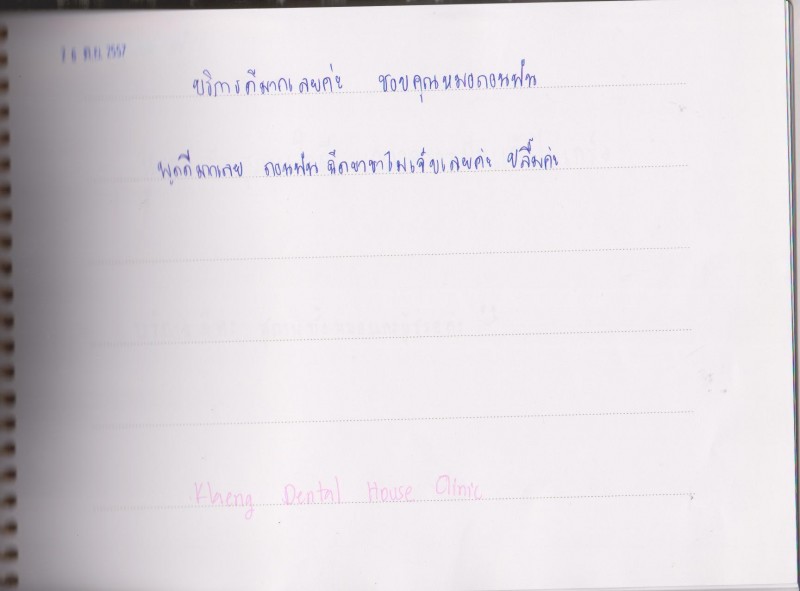 บริการดีมากเลยค่ะ ชอบคุณหมอถอนฟัน
พูดดีมากเลย ถอนฟัน ฉีดยาชาไม่เจ็บเลยค่ะ ปลื้มค่ะ
Kheng Dental House Clinic